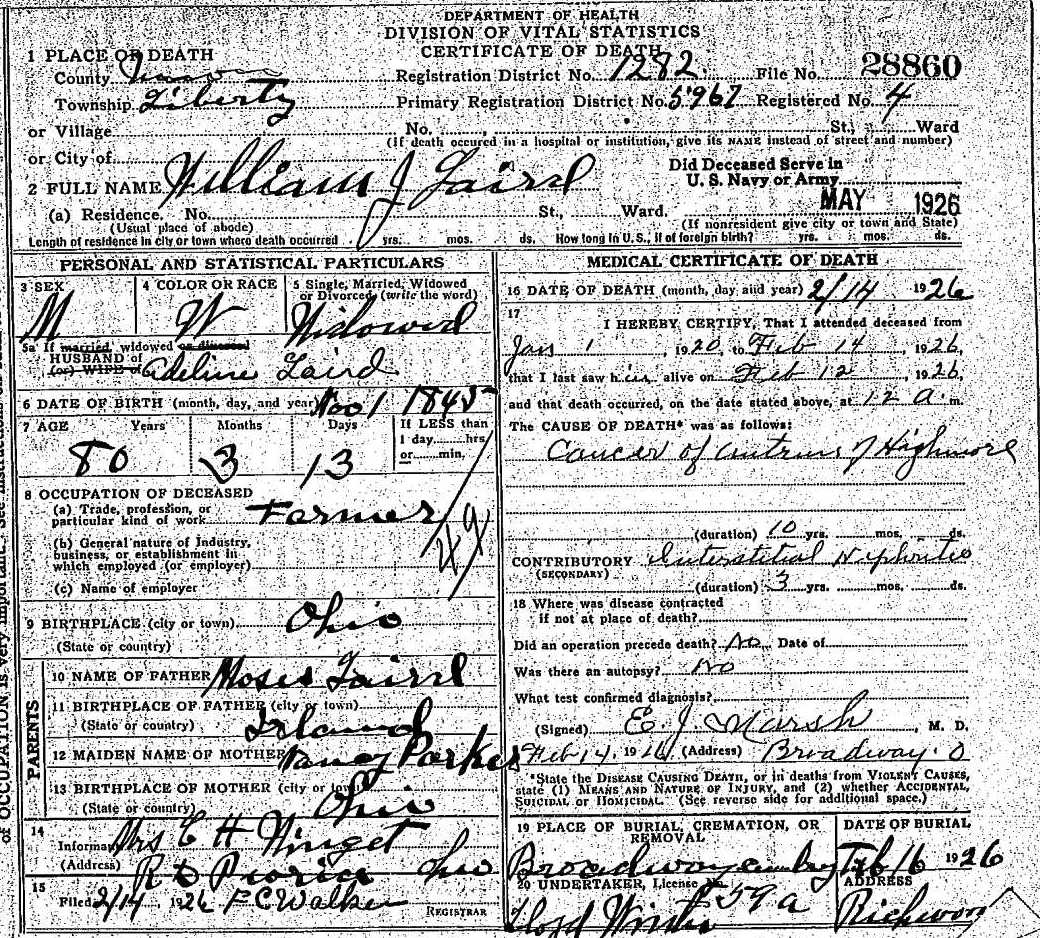 DEPARTMENT OF HEALTH
DIVISION OF VITAL STATISTICS
CERTIFICATE OF DEATH
1 PLACE OF DEATH
County
Registration District No. 1282. File No. 28860
Township Liberty Primary Registration District No. 5967 Registered No. 4
or Village No. St., Ward
(If death occured in a hospital or institution, give its NAME instead of street and number)
or City of
Did Deceased Serve in
U. S. Navy or Army
2 FULL NAME William J Laird
MAY 1926
(a) Residence. No. St., Ward.
(Usual place of abode) (If nonresident give city or town and State)
Length of residence in city or town where death occurred yrs. mos. ds. How long in U.S., if of foreign birth? yrs. mos. ds.
PERSONAL AND STATISTICAL PARTICULARS
3 SEX 4 COLOR OR RACE 5 Single, Married, Widowed
or Divorced (write the word)
M W Widowed
5a If married, widowed or divorced
HUSBAND of
(or) WIFE of Adeline Laird
6 DATE OF BIRTH (month, day, and year) Nov 1 1845
7 AGE Years Months Days If LESS than
1 day hrs.
or min.
80 3 13
8 OCCUPATION OF DECEASED
(a) Trade, profession, or
particular kind of work Farmer
(b) General nature of Industry,
business, or establishment in
which employed (or employer)
(c) Name of employer
9 BIRTHPLACE (city or town) Ohio
(State or country)
10 NAME OF FATHER Moses Laird
11 BIRTHPLACE OF FATHER (city or town)
(State or country) Irland
12 MAIDEN NAME OF MOTHER Nancy Parker
13 BIRTHPLACE OF MOTHER (city or town)
(State or country) Ohio
PARENTS
14
Informant Mrs E H Winget
(Address) R D Peoria Ohio
15
Filed 2/14 1926 F C Walker
REGISTRAR
MEDICAL CERTIFICATE OF DEATH
16 DATE OF DEATH (month, day and year) 2/14 1926
17
I HEREBY CERTIFY, That I attended deceased from
Jan 1, 1920, to Feb 14, 1926,
that I last saw him alive on Feb 12, 1926,
and that death occurred, on the date stated above, at 12 a. m.
The CAUSE OF DEATH* was as follows:
Cancer of antrum of Highmore
(duration) 10 yrs. mos. ds.
CONTRIBUTORY Interstitial Nephritis
(SECONDARY)
(duration) 3 yrs. mos. ds.
18 Where was disease contracted
if not at place of death?
Did an operation precede death? No Date of
Was there an autopsy? No
What test confirmed diagnosis?
(Signed) E. J. Marsh, M. D.
Feb 14, 1926 (Address) Broadway. O
*State the DISEASE CAUSING DEATH, or in deaths from VIOLENT CAUSES,
state (1) MEANS AND NATURE OF INJURY, and (2) whether ACCIDENTAL,
SUICIDAL or HOMICIDAL. (See reverse side for additional space.)
19 PLACE OF BURIAL, CREMATION, OR
REMOVAL
DATE OF BURIAL
Broadway Feb 16 1926
20 UNDERTAKER, License No. 59 a
ADDRESS
Lloyd